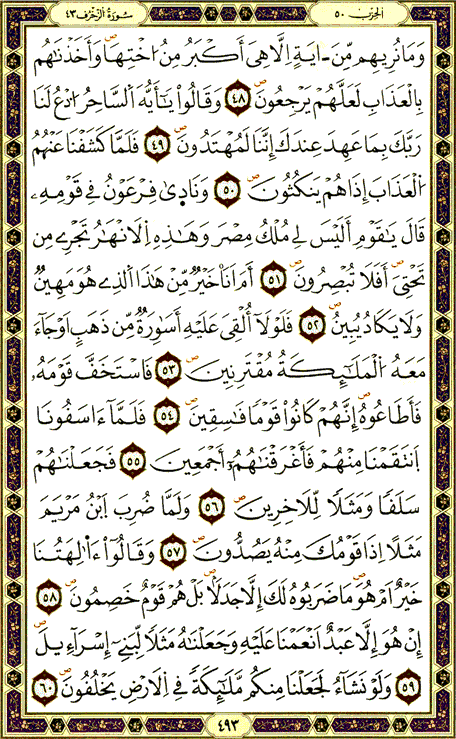 الحزب ٥٠
سورة الزخرف ٤٣
وَمَا نُرِيهِم مِّنَ ايَةٍ اِلَّا هِيَ أَكْبَرُ مِنُ اخْتِهَا وَأَخَذْنَاهُم
بِالْعَذَابِ لَعَلَّهُمْ يَرْجِعُونَ ٤٨ وَقَالُواْ يَٰٓأَيُّهَ السَّاحِرُ ادْعُ لَنَا
رَبَّكَ بِمَا عَهِدَ عِندَكَ إِنَّنَا لَمُهْتَدُونَ ٤٩ فَلَمَّا كَشَفْنَا عَنْهُمُ
الْعَذَابَ إِذَا هُمْ يَنكُثُونَ ٥٠ وَنَادٰى فِرْعَوْنُ فِي قَوْمِهِۦ
قَالَ يَٰقَوْمِ أَلَيْسَ لِي مُلْكُ مِصْرَ وَهَٰذِهِ اِلَانْهَٰرُ تَجْرِے مِن
تَحْتِيَ أَفَلَا تُبْصِرُونَ ٥١ أَمَ اَنَا خَيْرٌ مِّنْ هَٰذَا اَلذِے هُوَ مَهِينٌ
وَلَا يَكَادُ يُبِينُ ٥٢ فَلَوْلَا أُلْقِيَ عَلَيْهِ أَسَٰوِرَةٌ مِّن ذَهَبٍ اَوْ جَآءَ
مَعَهُ الْمَلَٰٓئِكَةُ مُقْتَرِنِينَ ٥٣ فَاسْتَخَفَّ قَوْمَهُۥ
فَأَطَاعُوهُ إِنَّهُمْ كَانُواْ قَوْمًا فَٰسِقِينَ ٥٤ فَلَمَّآ ءَاسَفُونَا
اَنتَقَمْنَا مِنْهُمْ فَأَغْرَقْنَٰهُمُۥٓ أَجْمَعِينَ ٥٥ فَجَعَلْنَٰهُمْ
سَلَفًا وَمَثَلًا لِّلَاخِرِينَ ٥٦ وَلَمَّا ضُرِبَ اَبْنُ مَرْيَمَ
مَثَلًا اِذَا قَوْمُكَ مِنْهُ يَصُدُّونَ ٥٧ وَقَالُواْ ءَاَٰلِهَتُنَا
خَيْرٌ اَمْ هُوَ مَا ضَرَبُوهُ لَكَ إِلَّا جَدَلًا بَلْ هُمْ قَوْمٌ خَصِمُونَ ٥٨
إِنْ هُوَ إِلَّا عَبْدٌ اَنْعَمْنَا عَلَيْهِ وَجَعَلْنَٰهُ مَثَلًا لِّبَنِےٓ إِسْرَآءِيلَ
٥٩ وَلَوْ نَشَآءُ لَجَعَلْنَا مِنكُم مَّلَٰٓئِكَةً فِي اِلَارْضِ يَخْلُفُونَ ٦٠
٤٩٣